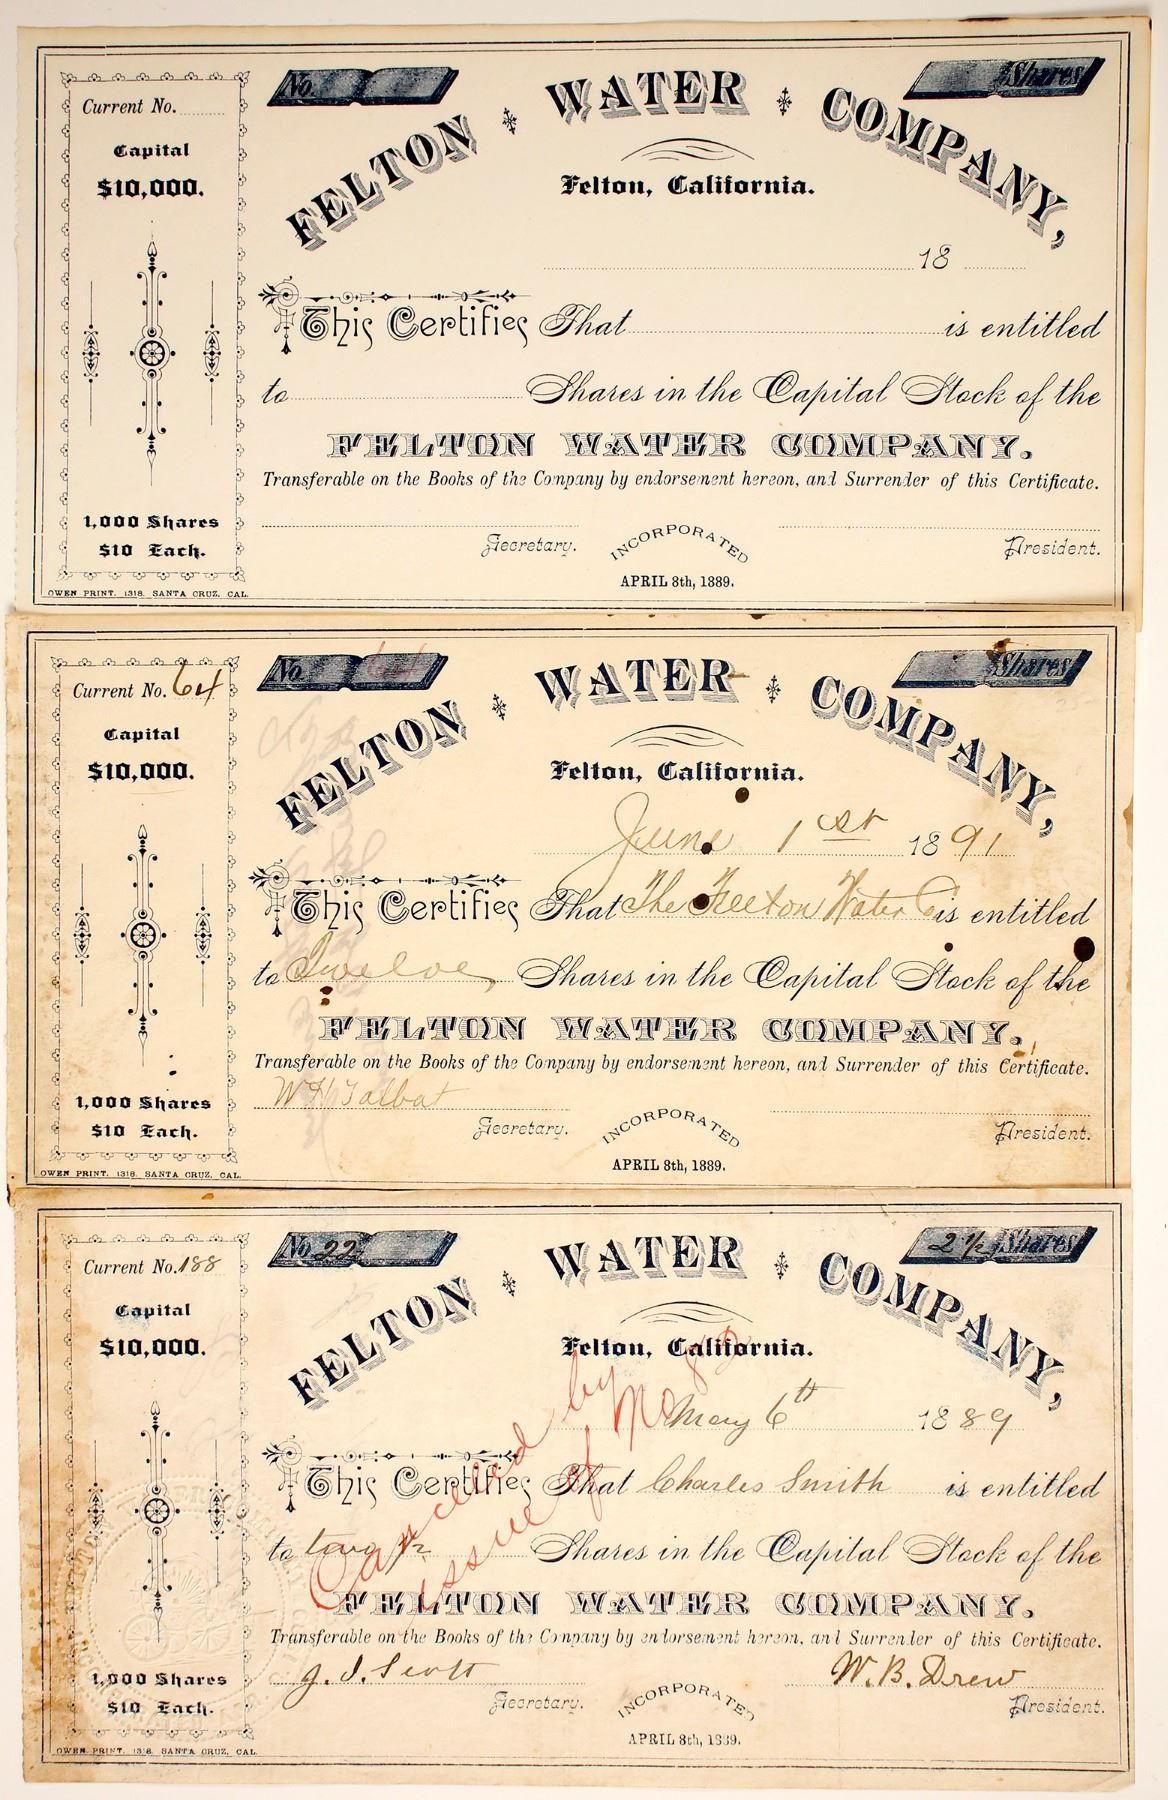 No. Shares
FELTON WATER COMPANY,
Current No.
Capital
$10,000.
Felton, California.
18
This Certifies That is entitled
to Shares in the Capital Stock of the
FELTON WATER COMPANY.
Transferable on the Books of the Company by endorsement hereon, and Surrender of this Certificate.
1,000 Shares
$10 Each.
Secretary. INCORPORATED President.
APRIL 8th, 1889.
OWEN PRINT. 1318. SANTA CRUZ, CAL.
No. 64 Shares
FELTON WATER COMPANY,
Current No. 64
Capital
$10,000.
Felton, California.
June 1st 1891
This Certifies That The Felton Water Co is entitled
to Twelve Shares in the Capital Stock of the
FELTON WATER COMPANY.
Transferable on the Books of the Company by endorsement hereon, and Surrender of this Certificate.
W H Talbot
1,000 Shares
$10 Each.
Secretary. INCORPORATED President.
APRIL 8th, 1889.
OWEN PRINT. 1318. SANTA CRUZ, CAL.
No. 22 2 1/2 Shares
FELTON WATER COMPANY,
Current No. 188
Capital
$10,000.
Felton, California.
May 6th 1889
Cancelled by
issue of No
This Certifies That Charles Smith is entitled
to two 1/2 Shares in the Capital Stock of the
FELTON WATER COMPANY.
Transferable on the Books of the Company by endorsement hereon, and Surrender of this Certificate.
W. B. Drew
1,000 Shares
$10 Each.
Secretary. INCORPORATED President.
APRIL 8th, 1889.
OWEN PRINT. 1318. SANTA CRUZ, CAL.